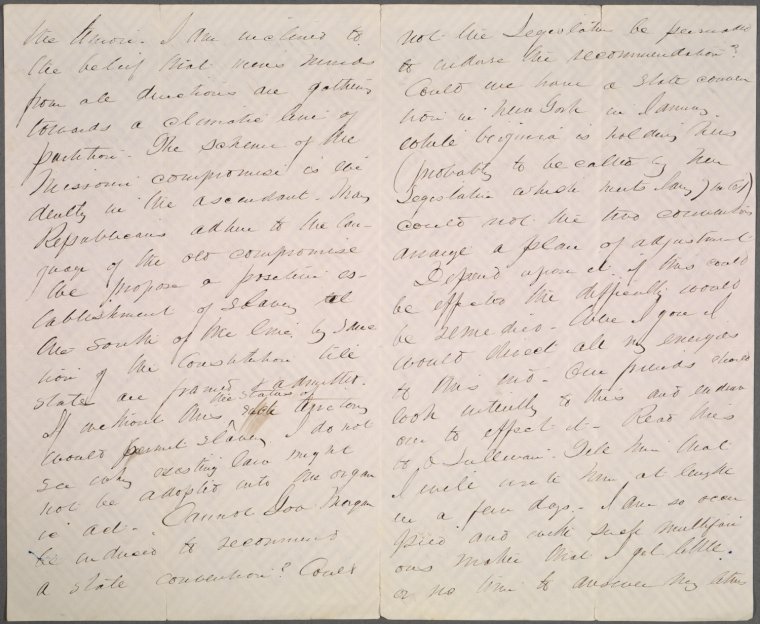 the Union. I am inclined to
the belief that mens minds
from all directions are gathering
towards a climatic line of
partition. The scheme of the
Missouri compromise is evi
dently in the ascendant. Many
Republicans adhere to the lan-
guage of the old compromise
We propose a positive es-
tablishment of slavery
the south of the line, by sanc
tion of the Constitution till
states are framed & admitted.
If without this the status of
would permit slavery I do not
see why existing law might
not be adopted into the organ
ic act. Cannot Gov Morgan
be induced to recommend
a state convention? Could
not the Legislature be persuaded
to endorse the recommendation?
Could we have a state conven
tion in New York in January
while Virginia is holding hers
(probably to be called by her
Legislature which meets Jany)
could not the two conventions
arrange a plan of adjustment
Depend upon it if this could
be effected the difficulty would
be remedied. Were I you I
would direct all my energies
to this end. Our friends should
look intently to this and endeav
our to effect it. Read this
to O'Sullivan. Tell him that
I will write him at length
in a few days. I am so occu
pied and with such multifari
ous matter that I get little
or no time to answer my